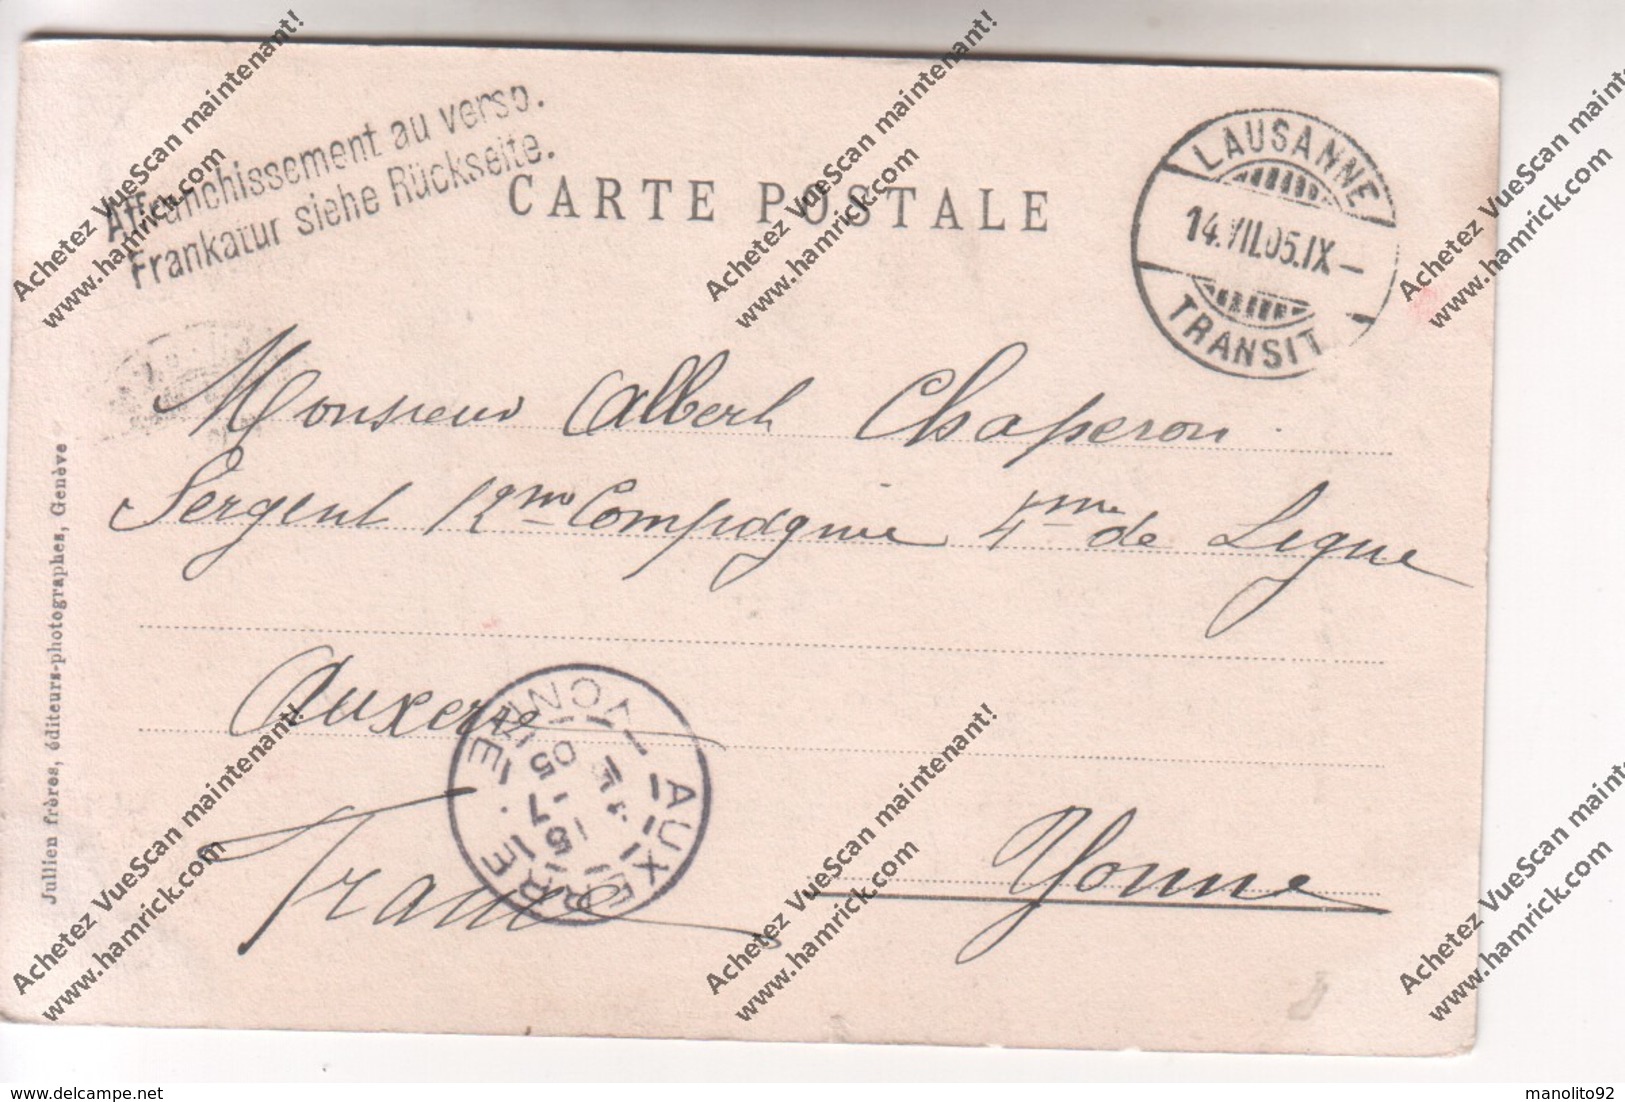 Affranchissement au verso.
Frankatur siehe Rückseite.
CARTE POSTALE
LAUSANNE
14.VII.05.IX-
TRANSIT
Monsieur Albert Chaperon
Sergent 12me Compagnie 4me de Ligne
Auxerre
France
Yonne
AUXERRE
YONNE
15
7
05
Jullien frères, éditeurs-photographes, Genève
Achetez VueScan maintenant!
www.hamrick.com
Achetez VueScan maintenant!
www.hamrick.com
Achetez VueScan mainten
www.hamrick.com
Achetez VueScan maintenant!
www.hamrick.com
Achetez VueScan maintenant!
www.hamrick.com
Achetez VueScan mainten
www.hamrick.com
delcampe.net
manolito92